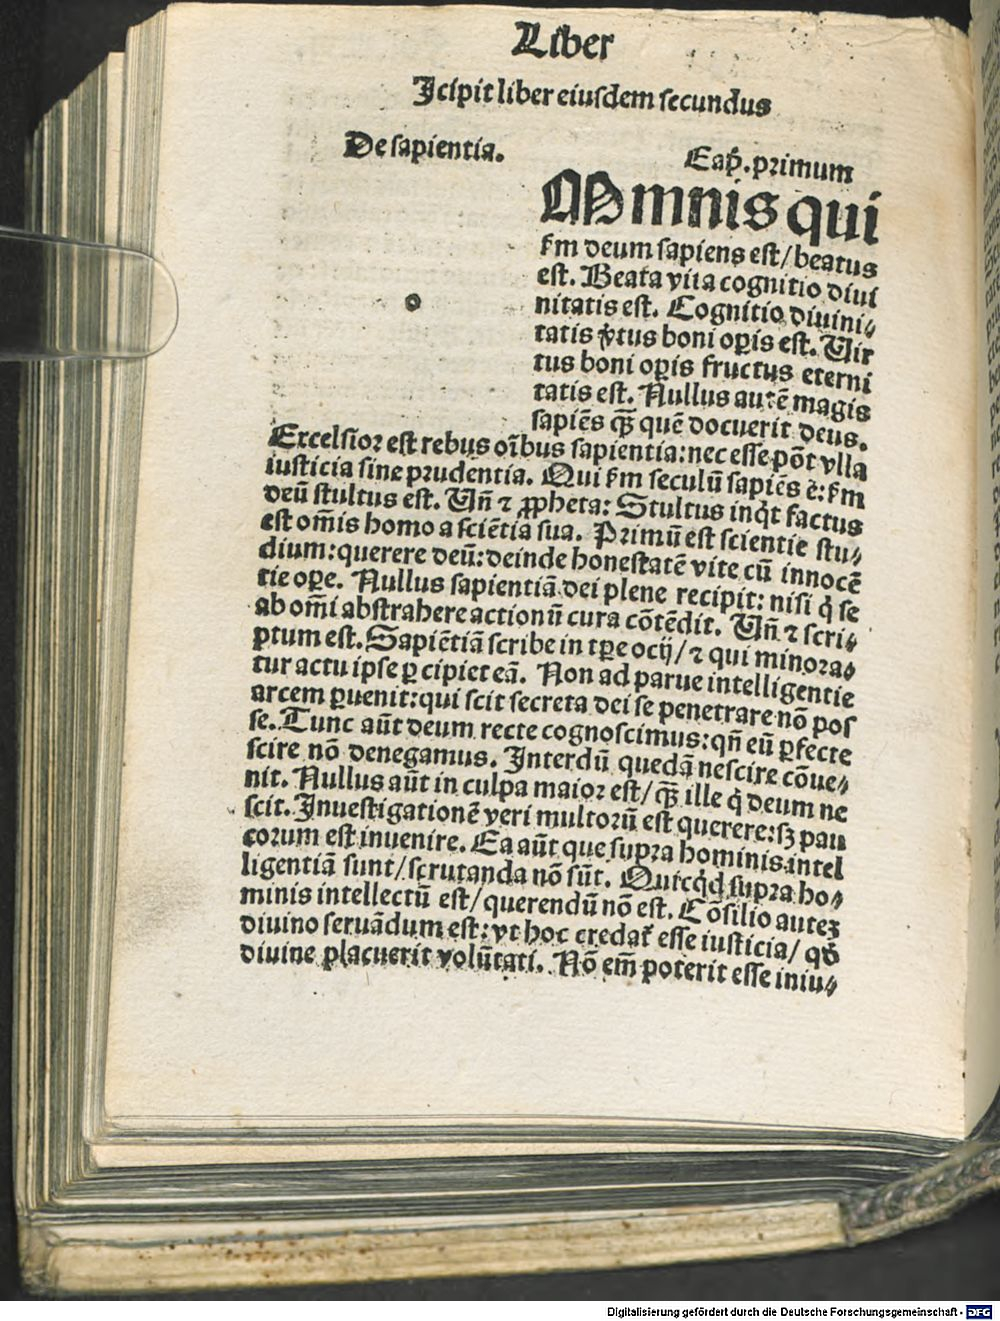 Liber
Icipit liber eiusdem secundus
De sapientia.
Cap̄. primum
o
Omnis qui
ẜm deum sapiens est/beatus
est. Beata vita cognitio diui
nitatis est. Cognitio diuini⸗
tatis v̓tus boni oꝑis est. Vir
tus boni oꝑis fructus eterni
tatis est. Nullus autē magis
sapiēs qꝫ̄ quē docuerit deus.
Excelsior est rebus oībus sapientia:nec esse pōt vlla
iusticia sine prudentia. Qui ẜm seculū sapiēs ē:ẜm
deū stultus est. Vn̄ ⁊ ꝓpheta: Stultus inqͥt factus
est om̄is homo a sciētia sua. Primū est scientie stu⸗
dium:querere deū:deinde honestatē vite cū innocē
tie oꝑe. Nullus sapientiā dei plene recipit: nisi qͥ se
ab om̄i abstrahere actionū cura cōtēdit. Vn̄ ⁊ scri⸗
ptum est. Sapiētiā scribe in tꝑe ocij/⁊ qui minora⸗
tur actu ipse ꝑcipiet eā. Non ad parue intelligentie
arcem ꝑuenit:qui scit secreta dei se penetrare nō pos
se. Tunc aūt deum recte cognoscimus:qn̄ eū ꝑfecte
scire nō denegamus. Interdū quedā nescire cōue⸗
nit. Nullus aūt in culpa maior est/qꝫ̄ ille qͥ deum ne
scit. Inuestigationē veri multorū est querere:sꝫ pau
corum est inuenire. Ea aūt que supra hominis intel
ligentiā sunt/scrutanda nō sūt. Quicqͥd supra ho⸗
minis intellectū est/querendū nō est. Cōsilio auteꝫ
diuino seruādum est:vt hoc credat᷑ esse iusticia/ qd̓
diuine placuerit volūtati. Nō em̄ poterit esse iniu⸗
Digitalisierung gefördert durch die Deutsche Forschungsgemeinschaft - DFG